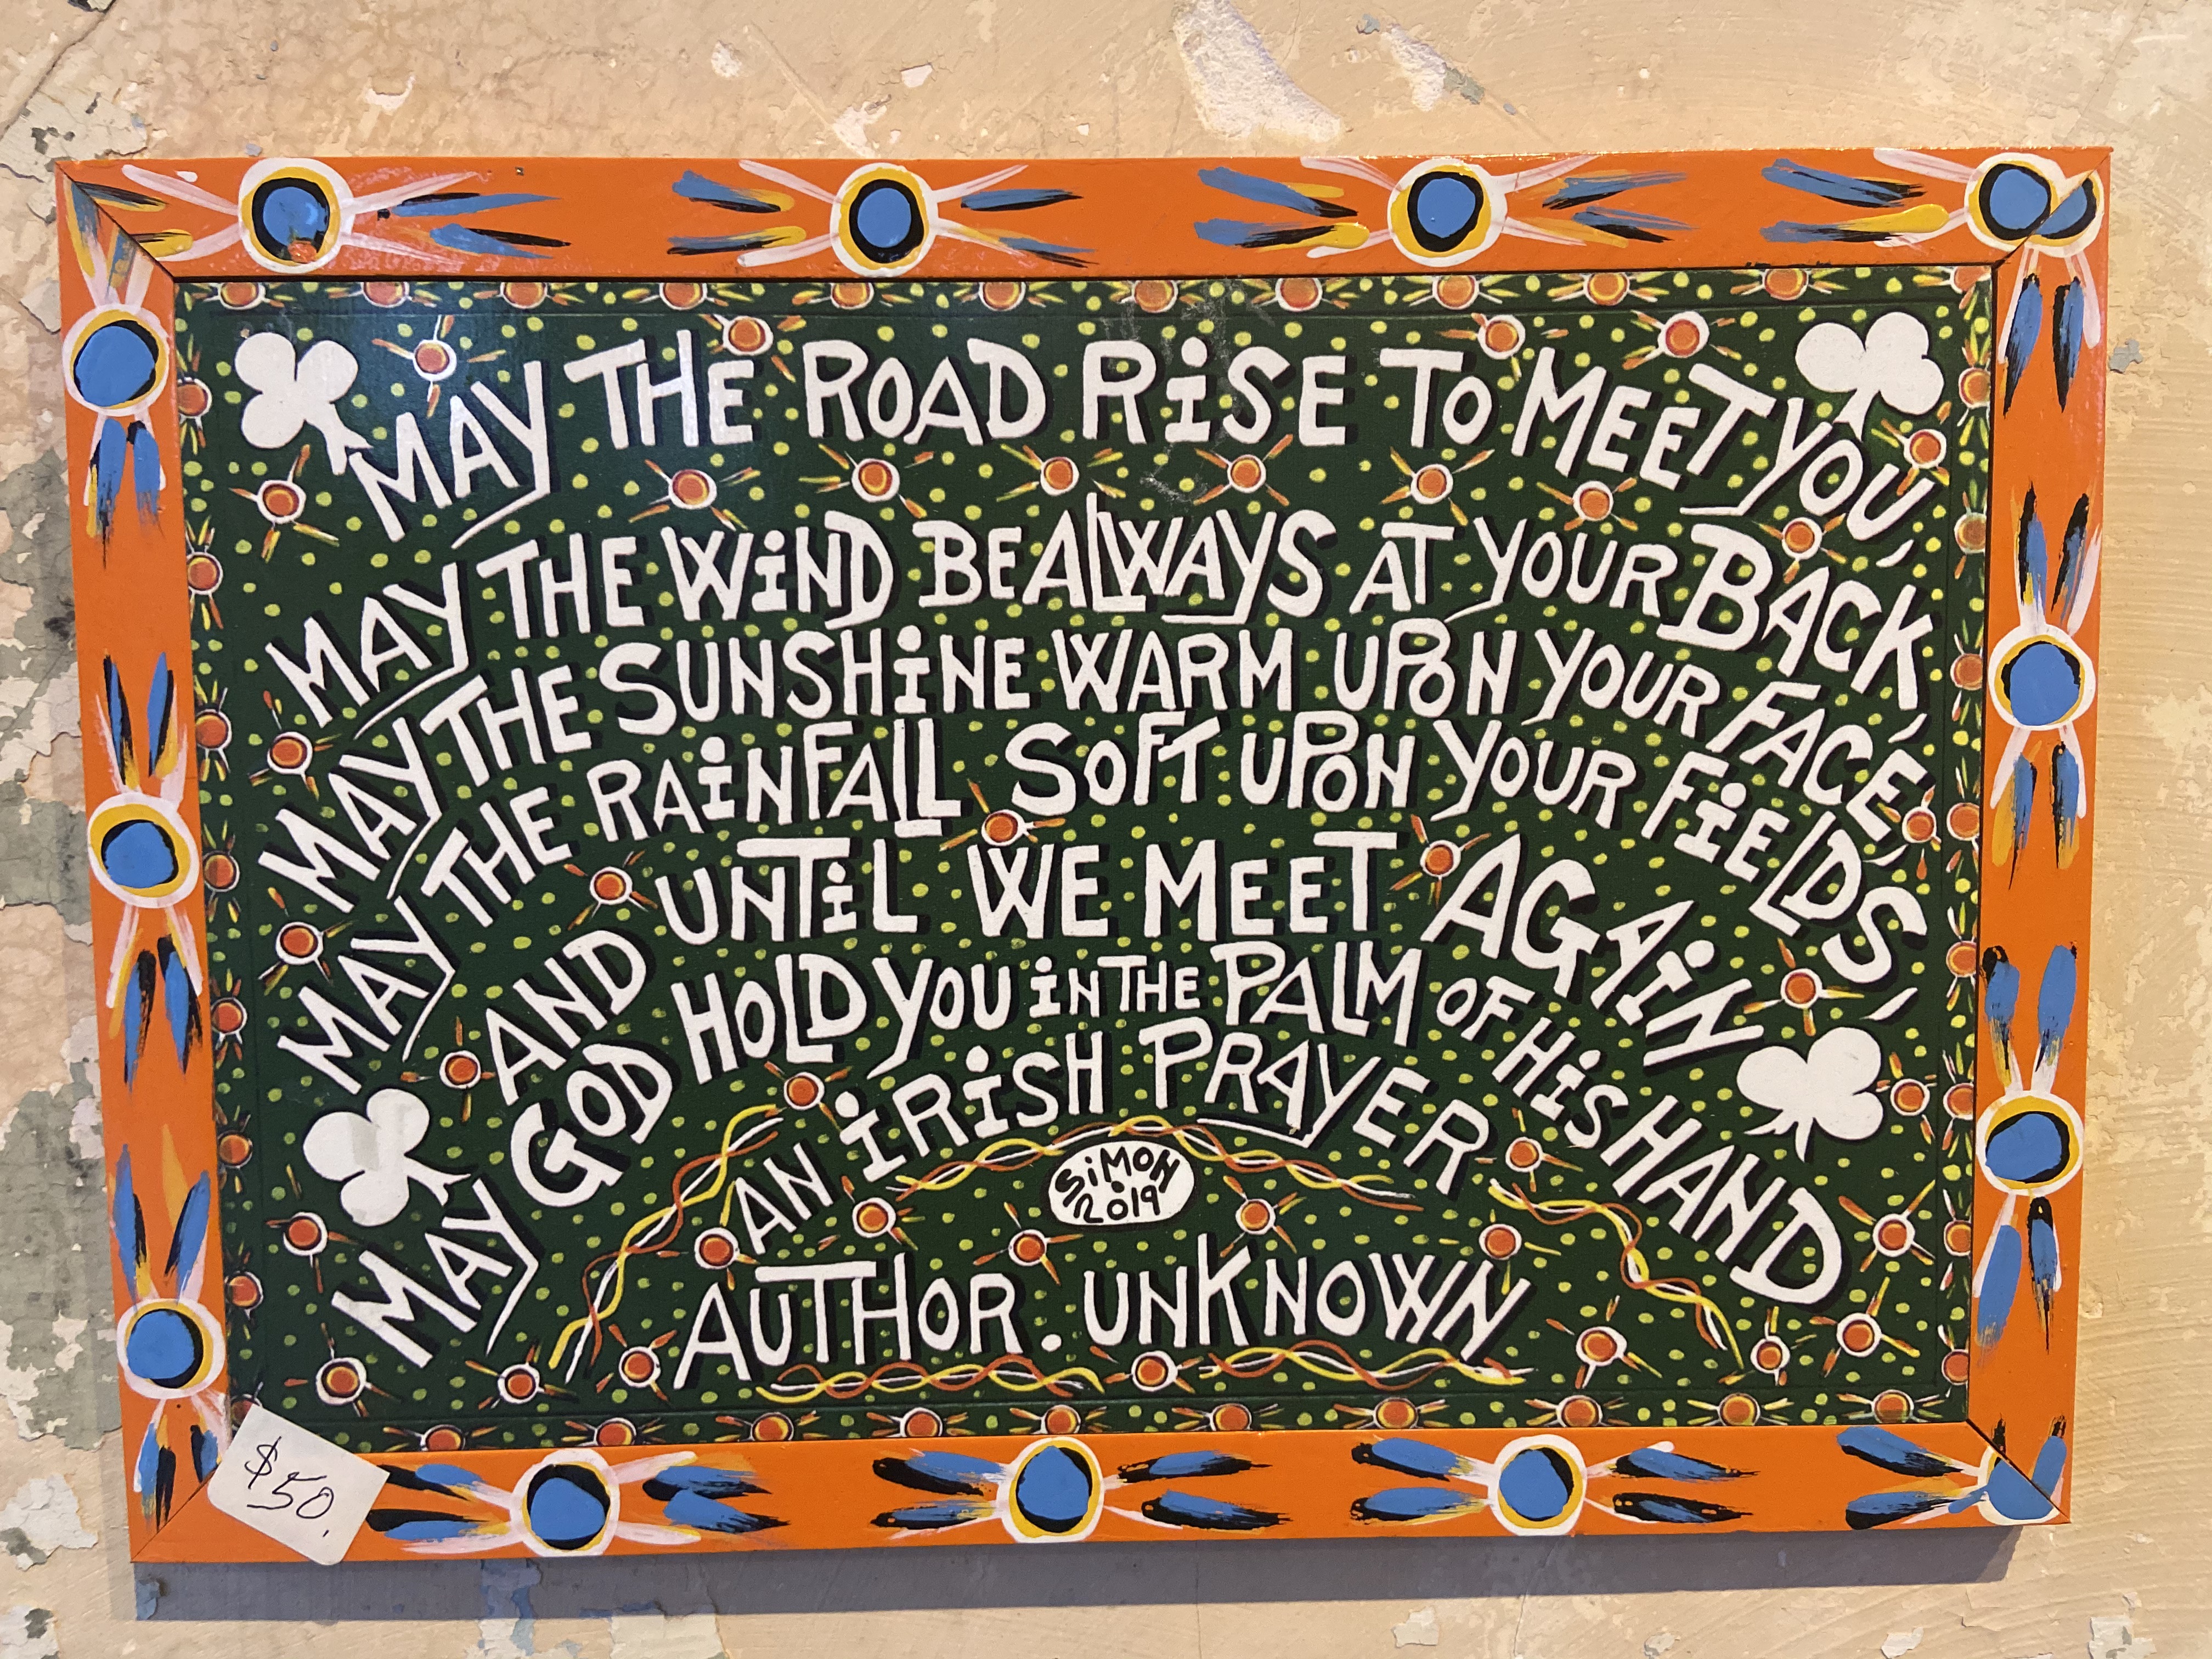 MAY THE ROAD RiSE TO MEET YOU,
MAY THE WiND BE ALWAYS AT YOUR BACK,
MAY THE SUNSHiNE WARM UPON YOUR FACE,
MAY THE RAiNFALL SOFT UPON YOUR FiELDS,
AND UNTiL WE MEET AGAiN
MAY GOD HOLD YOU iN THE PALM OF HiS HAND
AN iRiSH PRAYER
SiMON
2019
AUTHOR. UNKNOWN
$50.